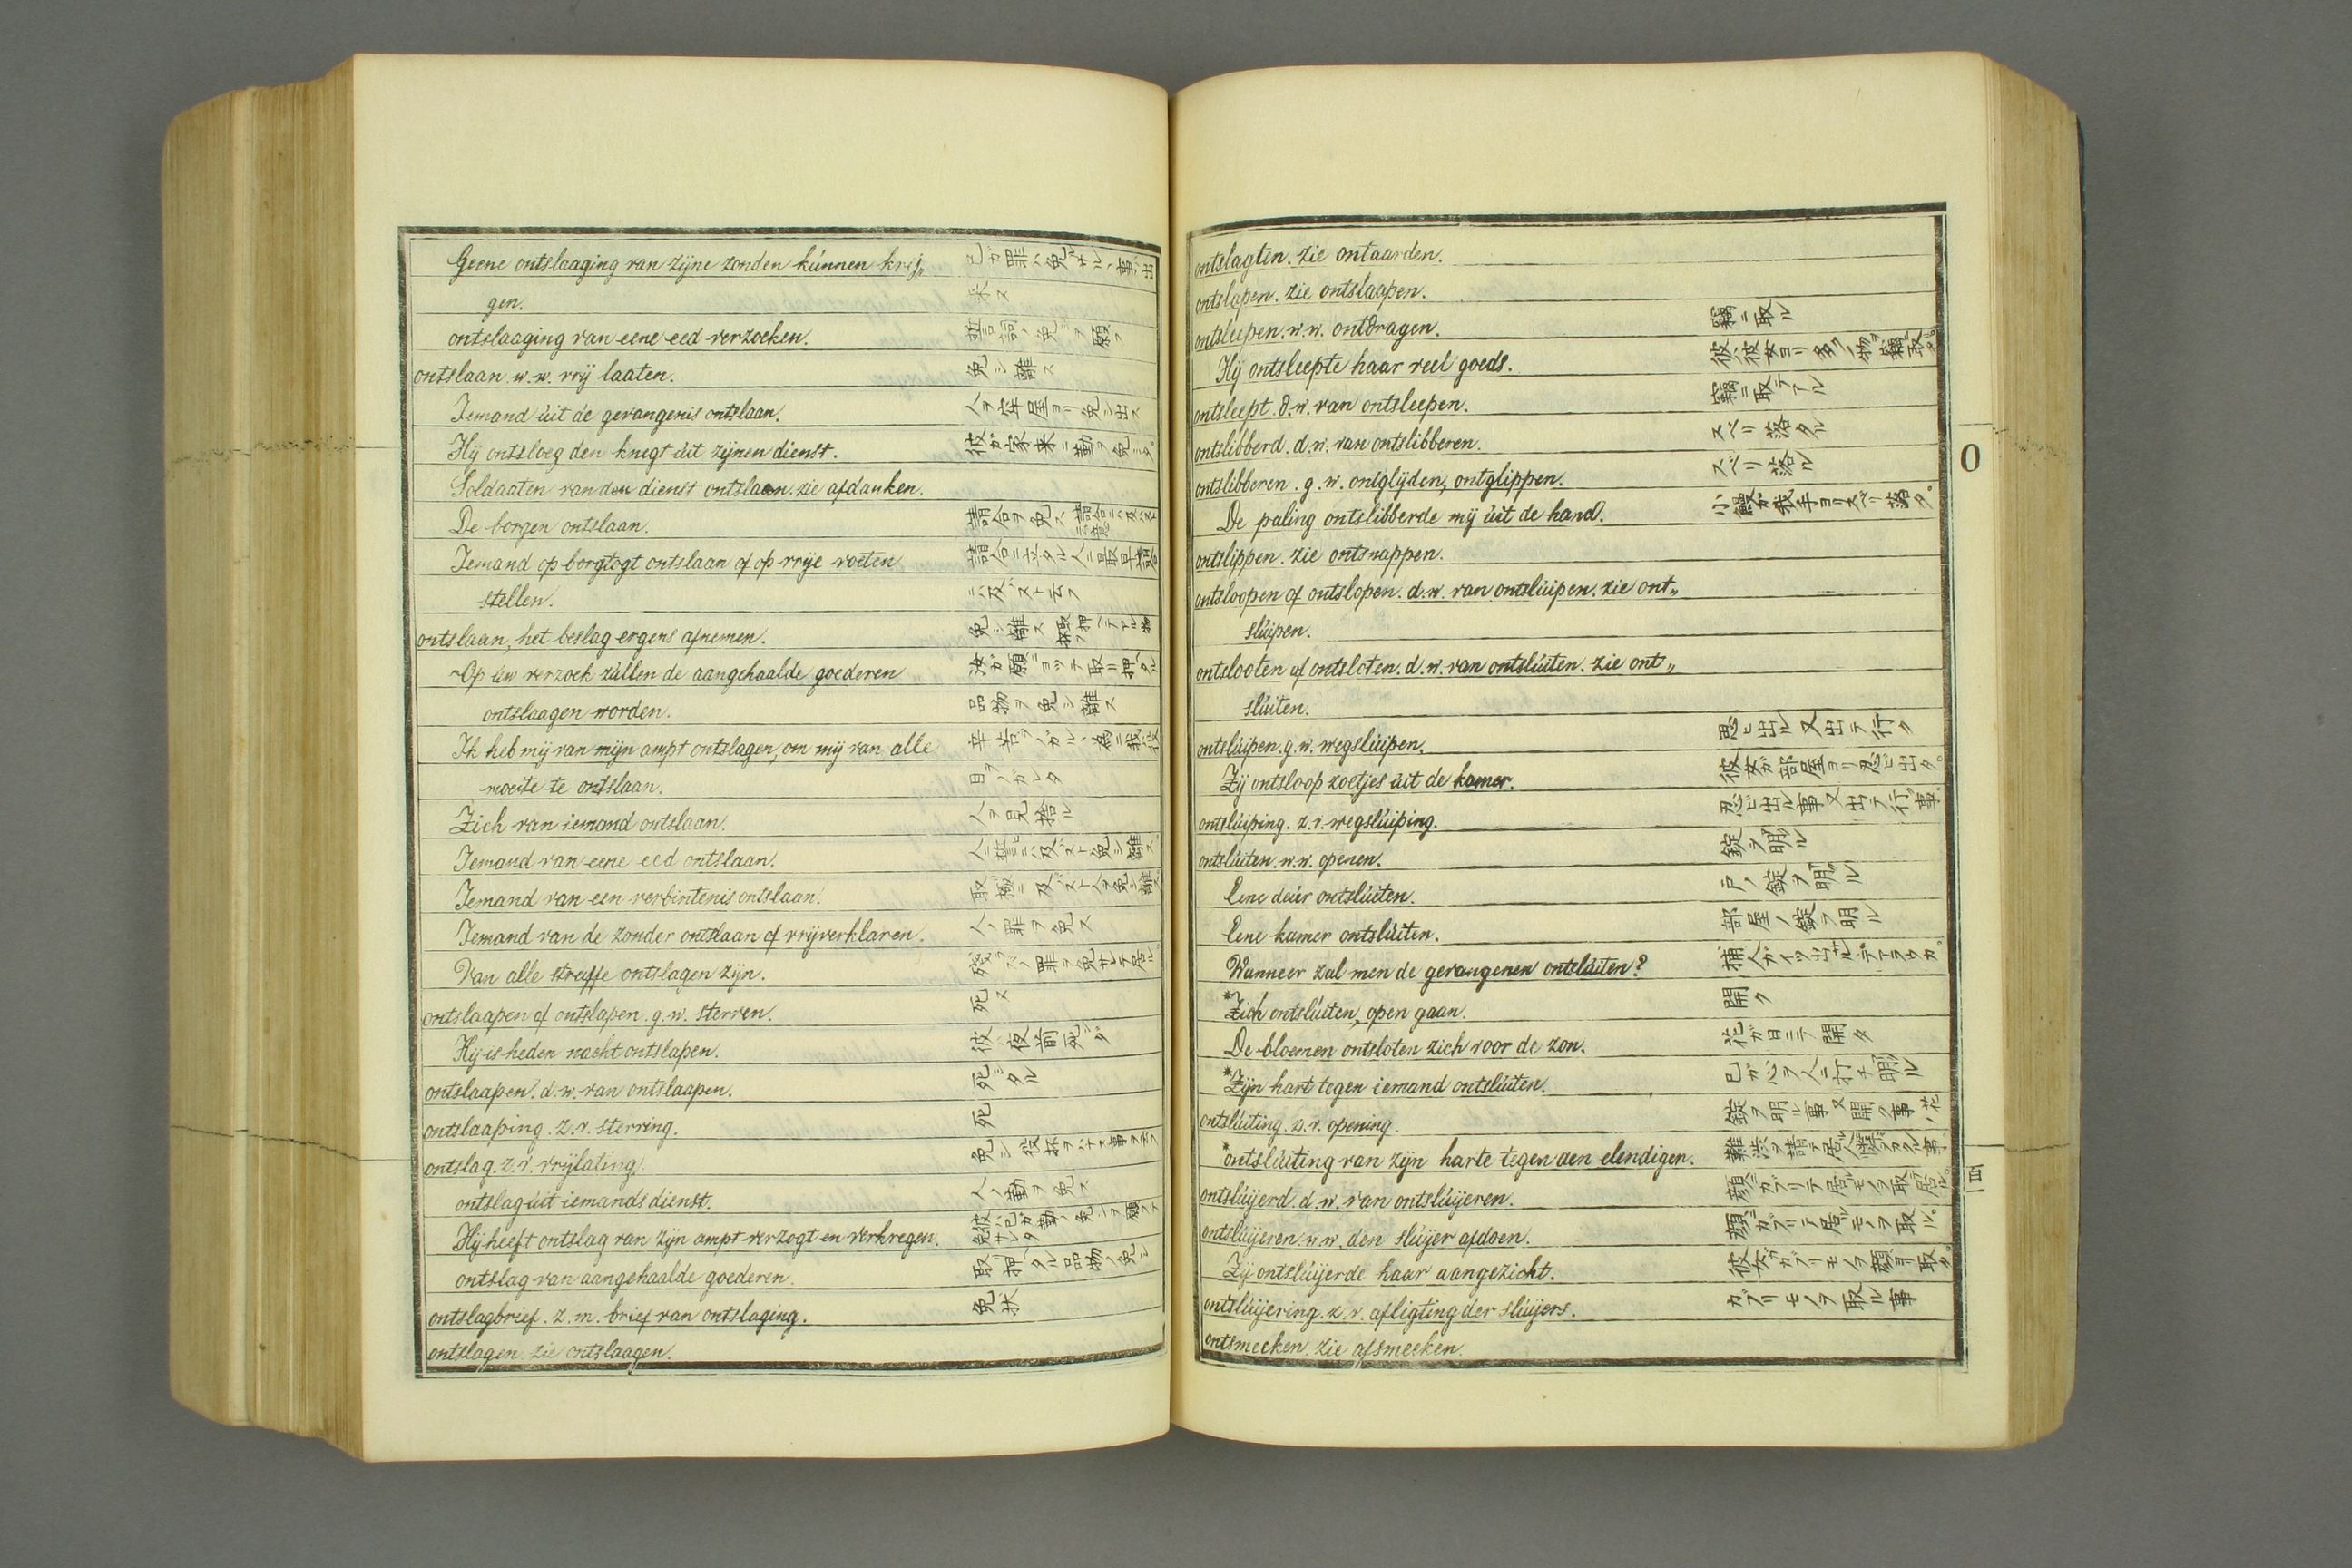 Geene ontslaaging van zijne zonden kúnnen krij„ 己ガ罪ハ免サル、事出
gen. 来ヌ
ontslaaging van eene eed verzoeken. 誓詞ノ免ヲ願フ
ontslaan. w.w. vrij laaten. 免シ離ス
Iemand úit de gevangenis ontslaan. 人ヲ牢屋ヨリ免シ出ス
Hij ontsloeg den knegt úit zijnen dienst. 彼ガ家来ニ勤ヲ免シタ。
Soldaaten van den dienst ontslaan. zie afdanken.
De borgen ontslaan. 請合ヲ免ス
Iemand op borgtogt ontslaan of op vrije voeten 請合ニ立タル人ニ最早請合
stellen. ニハ及バヌト云フ
ontslaan, het beslag ergens afnemen. 免シ離ス
Op úw verzoek zúllen de aangehaalde goederen 汝ガ願ニヨツテ取リ押ヘタル
ontslaagen worden. 品物ヲ免シ離ス
Ik heb mij van mijn ampt ontslagen, om mij van alle 辛苦ヲノガル、為ニ我役
moeite te ontslaan. 目ヲノガレタ
Zich van iemand ontslaan. 人ヲ見捨ル
Iemand van eene eed ontslaan. 人ニ誓ニハ及バヌト免シ離ス
Iemand van een verbintenis ontslaan. 取極ニ及バヌト人ヲ免シ離ス
Iemand van de zonder ontslaan of vrijverklaren. 人ノ罪ヲ免ス
Van alle straffe ontslagen zijn. 残ラズノ罪ヲ免サレテ居ル
ontslaapen of ontslapen. g.w. sterven. 死ス
Hij is heden nacht ontslapen. 彼ハ夜前死シタ
ontslaapen. d.w. van ontslaapen. 死シタル
ontslaaping. z.v. sterving. 死
ontslag. z.v. vrijlating. 免シ
ontslag úit iemands dienst. 人ノ勤ヲ免ス
Hij heeft ontslag van zijn ampt verzogt en verkregen. 彼ハ己ガ勤ノ免シヲ願フテ免サレタ
ontslag van aangehaalde goederen. 取押ヘタル品物ノ免シ
ontslagbrief. z.m. brief van ontslaging. 免状
ontslagen. zie ontslaagen.
ontslagten. zie ontaarden.
ontslapen. zie ontslaapen.
ontsleepen. w.w. ontdragen. 竊ニ取ル
Hij ontsleepte haar veel goeds. 彼ハ彼女ヨリ多クノ物ヲ竊ニ取タ。
ontsleept. d.w. van ontsleepen. 竊ニ取テアル
ontslibberd. d.w. van ontslibberen. スベリ落タル
ontslibberen. g.w. ontglijden, ontglippen. スベリ落ル
De paling ontslibberde mij úit de hand. 小鰻ガ我手ヨリスベリ落タ。
ontslippen. zie ontsnappen.
ontsloopen of ontslopen. d.w. van ontslúipen. zie ont„
slúipen.
ontslooten of ontsloten. d.w. van ontslúiten. zie ont„
slúiten.
ontslúipen. g.w. wegslúipen. 忍ビ出ル又出テ行ク
Zij ontsloop zoetjes úit de kamer. 彼女ガ部屋ヨリ忍ビ出タ。
ontslúiping. z.v. wegslúiping. 忍ビ出ル事又出テ行ク事
ontslúiten. w.w. openen. 錠ヲ明ル
Eene deúr ontslúiten. 戸ノ錠ヲ明ル
Eene kamer ontslúiten. 部屋ノ錠ヲ明ル
Wanneer zal men de gevangenen ontslúiten?
*Zich ontslúiten, open gaan. 開ク
De bloemen ontsloten zich voor de zon. 花ガ日ニテ開タ
*Zijn hart tegen iemand ontslúiten. 己ガ心ヲ人ニ打チ明ル
ontslúiting. z.v. opening. 錠ヲ明ル事又開ク事
*ontslúiting van zijn harte tegen den elendigen.
ontslúijerd. d.w. van ontslúijeren.
ontslúijeren. w.w. den slúijer afdoen.
Zij ontslúijerde haar aangezicht. 彼女ガカブリモノヲ顔ヨリ取タ。
ontslúijering. z.v. afligting der slúijers. カブリモノヲ取ル事
ontsmeeken. zie afsmeeken.
O